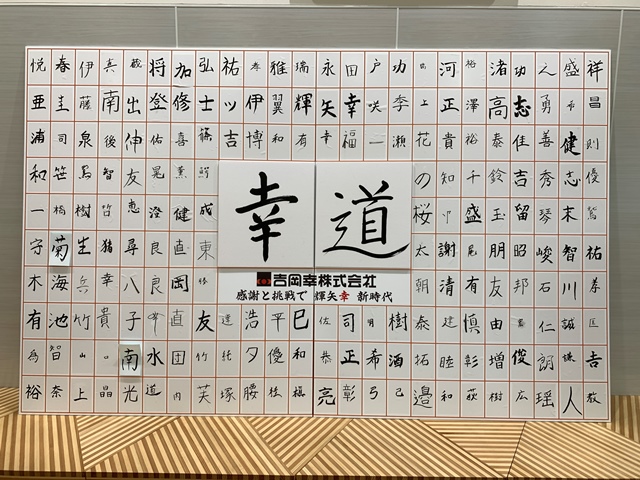 悦春伊真哉将加弘祐孝雅瑞永田戸功 河裕渚功人盛祥
亜圭藤南出登修士ッ伊翼輝矢幸咲季上正澤高志勇 昌
浦司泉後伸佑喜篠吉博和有幸福一瀬花貴裕泰佳善健則
和笹 智友晃薫 の知千鈴吉秀志優
一橋樹哲恵澄健成 桜 盛玉留琴末
守菊生猪尋良直東 太謝 朋昭峻智祐
木海兵幸八良岡 朝清有友邦石川孝
有池竹貴子 直友達浩平巳佐司明樹泰建慎由 仁誠匡
為智山 南水団竹 夕優和恭正希酒拓睦彰増俊朗謙吉
裕奈上晶光道内芙塚腰 亮彰弓己邉和荻樹広瑶人教
幸道
吉岡幸株式会社
感謝と挑戦で 輝矢幸 新時代